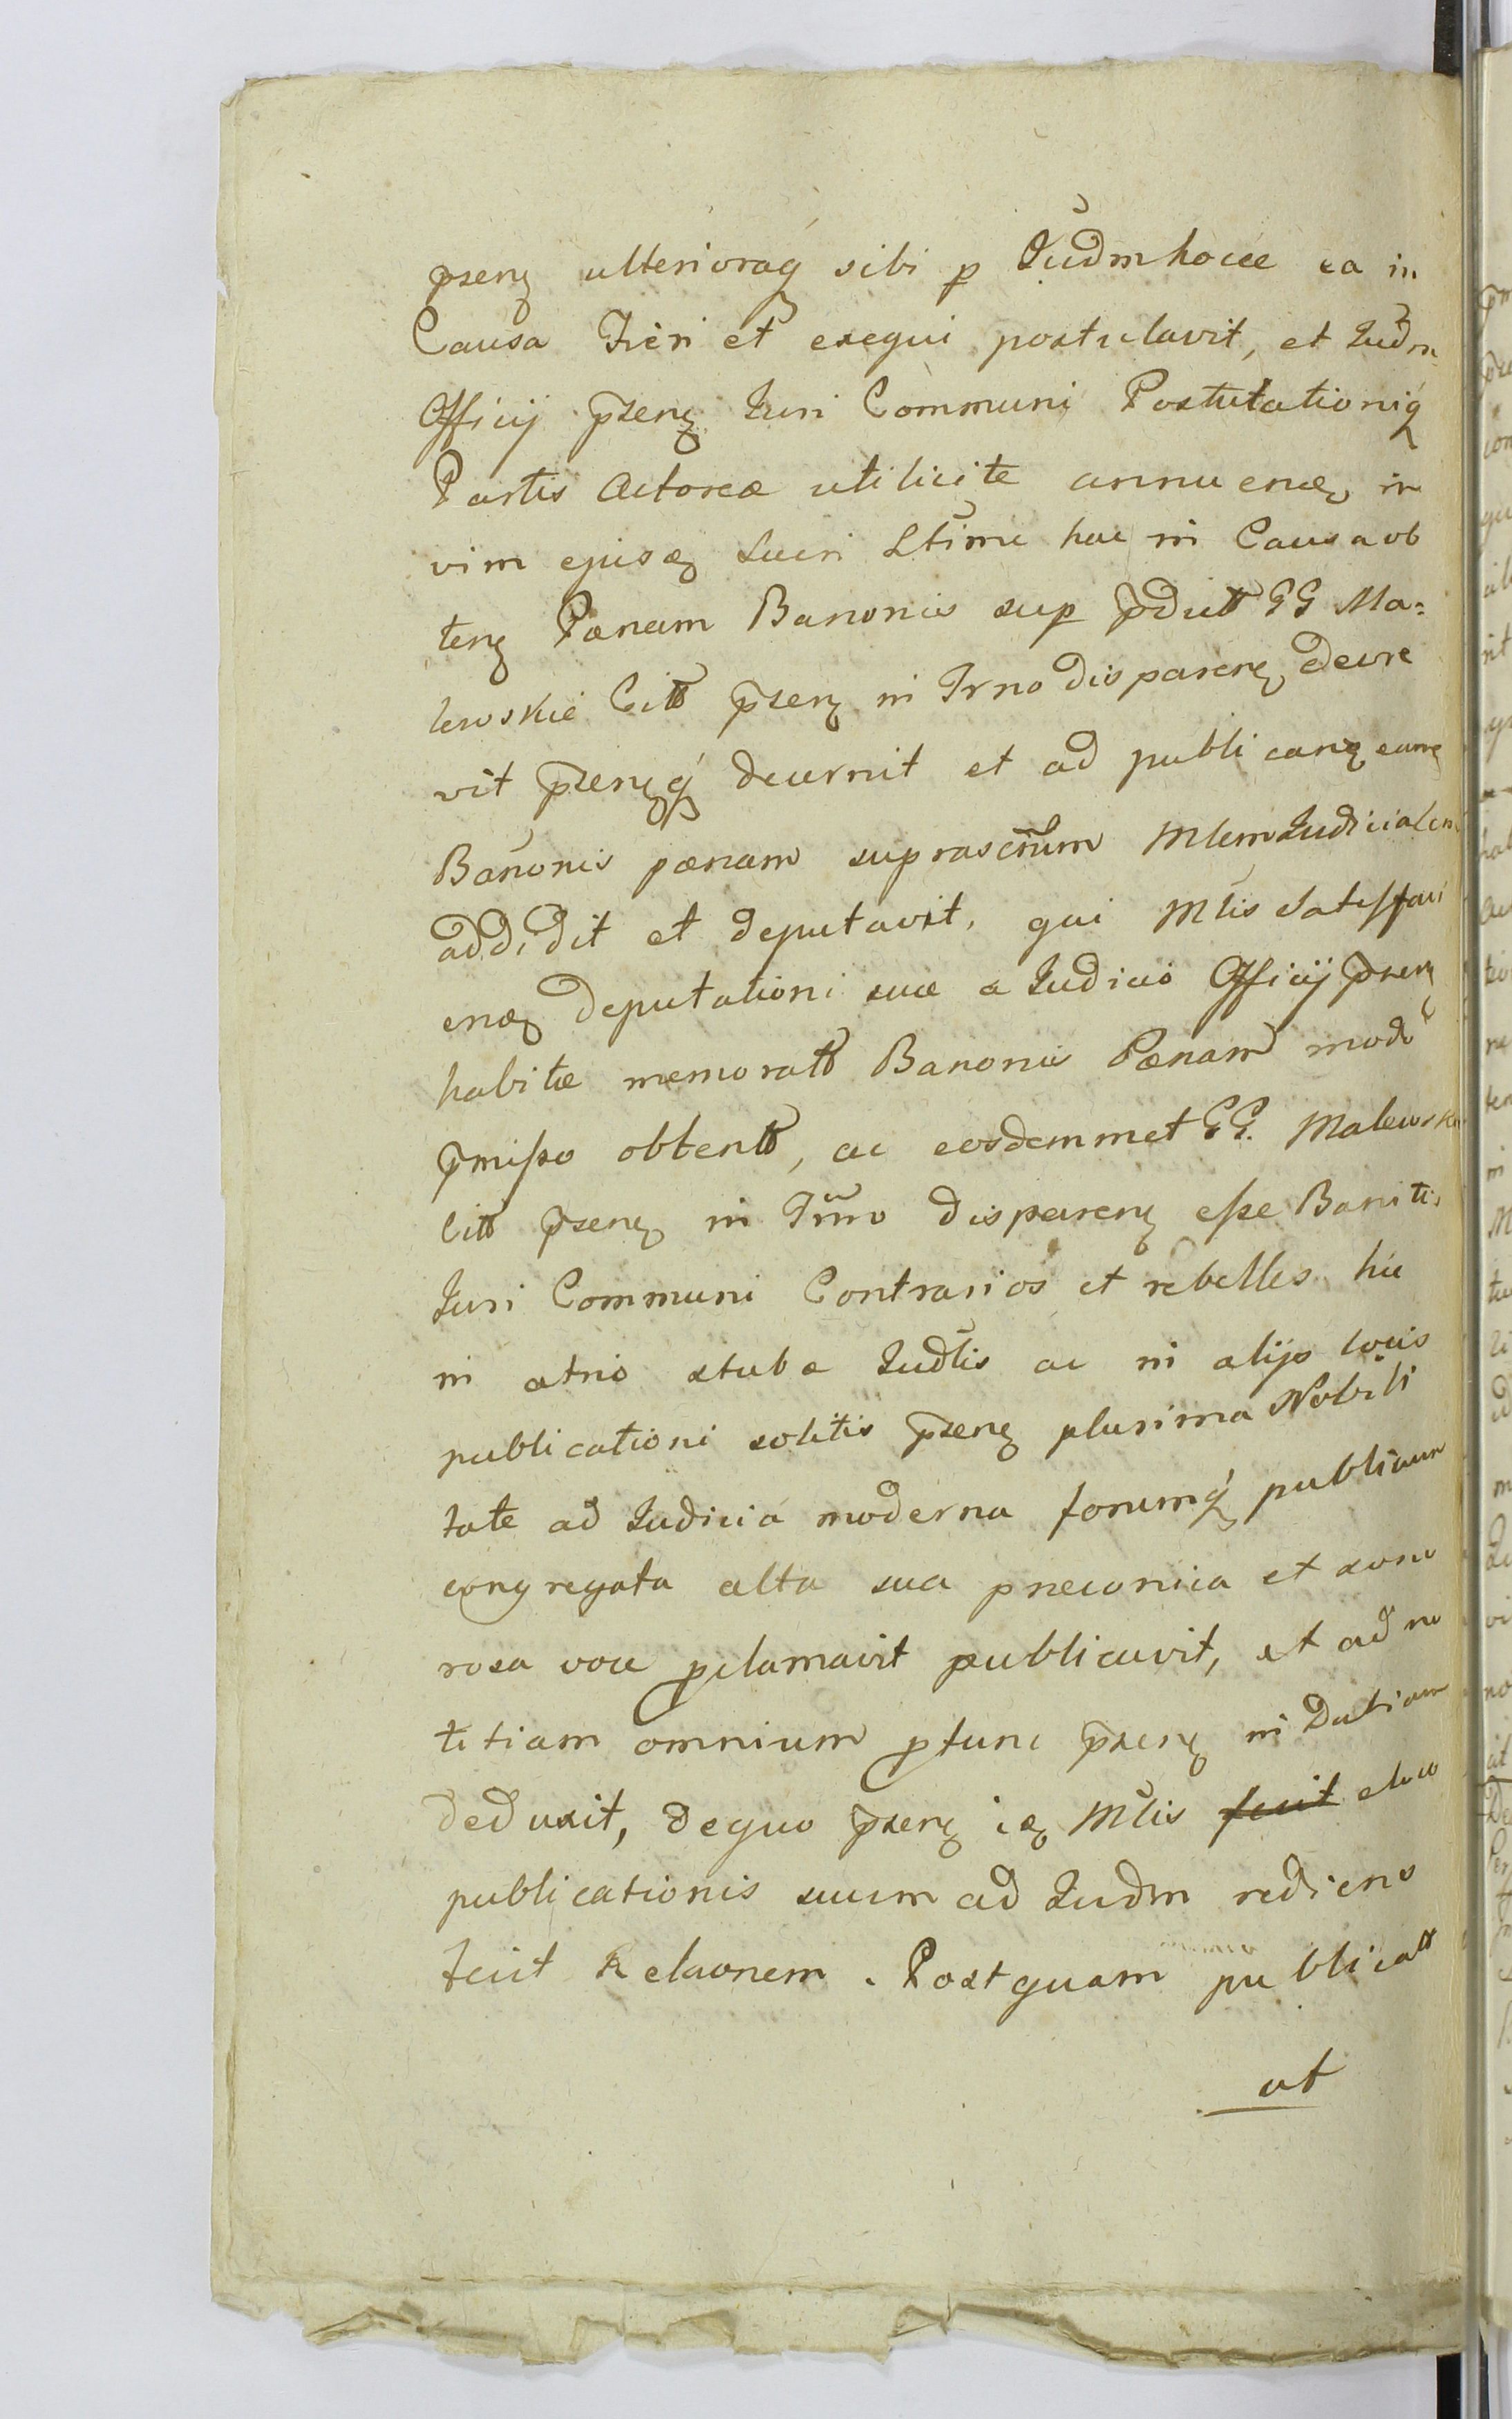 p̄senꝫ ulterioraq́ sibi p Judm̄ hocce ea in
Causa Fieri et exequi postulavit, et Judm̄
Officij p̄senꝫ Juri Communi Postulationiq́
Partis Actoreæ utilicite annuenꝫ in
vim ejusꝫ Lucri Ltimi hac in Causa ob
tenꝫ Pænam Banonis sup p̄dutt GG Ma=
lewskie Citt p̄senꝫ in Trno disparenꝫ decre
vit p̄senꝫq́ decernit et ad publicanꝫ eamꝫ
Banonis pænam suprascrñum Mlem Judicialem
addidit et deputavit, qui Mlis Satisfaci
enꝫ deputationi suæ a Judicio Officij p̄senꝫ
habitæ memoratt Banonis Pænam modo
p̄misso obtentt, ac eosdemmet GG. Malewskie
Citt p̄senꝫ in Trño disparenꝫ esse Banitis
Juri Communi Contrarios et rebelles hic
in atrio stubæ Judlis ac in alijs locis
publicationi solitis p̄senꝫ plurima Nobili
tate ad Judicia moderna forumq́ publicum
congregata alta sua præconica et sono
rosa voce pclamavit publicavit, et ad no
titiam omnium ptunc p̄senꝫ in Dutiam
deduxit, dequo p̄senꝫ iꝫ Mlis fecit
publicationis suum ad Judm̄ rediens
fecit Relaonem. Postquam publicatt
ut